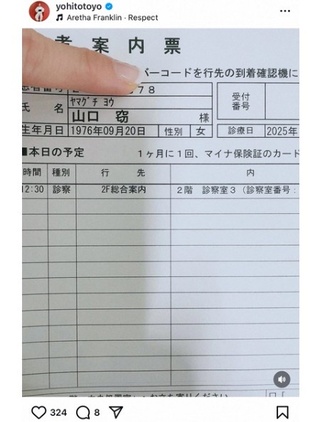 yohitotoyo
Aretha Franklin · Respect
者案内票
バーコードを行先の到着確認機に
患者番号 78
ヤマグチ ヨウ
氏名 山口 窈 様
受付番号
生年月日 1976年09月20日 性別 女 診療日 2025年
■本日の予定 1ヶ月に1回、マイナ保険証のカード
時間 種別 行先 内
12:30 診察 2F総合案内 2階 診察室3(診察室番号:
324 8